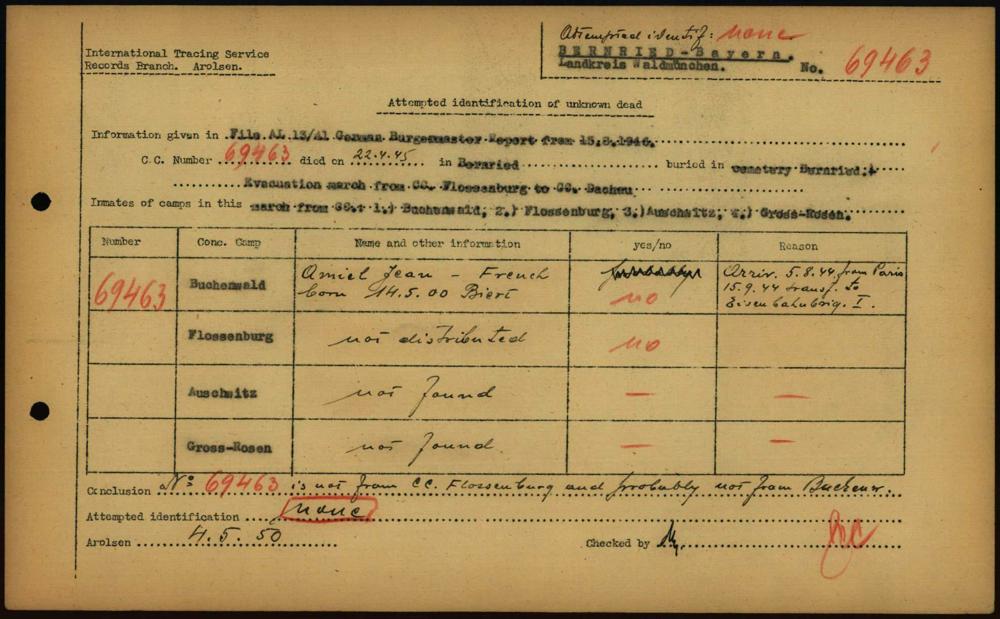 Attempted identif: none
International Tracing Service
Records Branch. Arolsen.
BERNRIED-Bayern.
Landkreis Waldmünchen.
No. 69463
Attempted identification of unknown dead
Information given in File AL 13/Al German Burgermaster Report from 15.8.1946.
C.C. Number 69463 died on 22.4.45 in Bernried buried in cemetery Bernried;
Evacuation march from CC. Flossenburg to CC. Dachau
Inmates of camps in this march from CC.: 1.) Buchenwald, 2.) Flossenburg, 3.) Auschwitz, 4.) Gross-Rosen.
Number Conc. Camp Name and other information yes/no Reason
69463 Buchenwald Amiel Jean – French no Arriv. 5.8.44 from Paris
born 14.5.00 Biert 15.9.44 transf. to
Eisenbahnbrig. I.
Flossenburg not distributed no
Auschwitz not found — —
Gross-Rosen not found. — —
Conclusion No 69463 is not from CC. Flossenburg and probably not from Buchenw.
Attempted identification none
Arolsen 4.5.50 Checked by